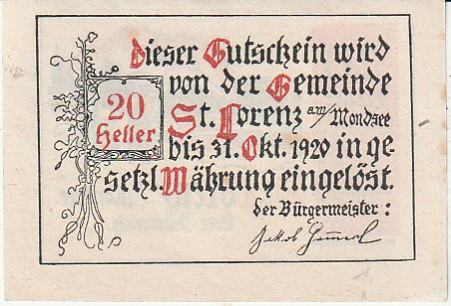 Dieser Gutschein wird
von der Gemeinde
20
Heller
St. Lorenz a/m Mondsee
bis 31. Okt. 1920 in ge-
setzl. Währung eingelöst.
der Bürgermeister:
Jakob